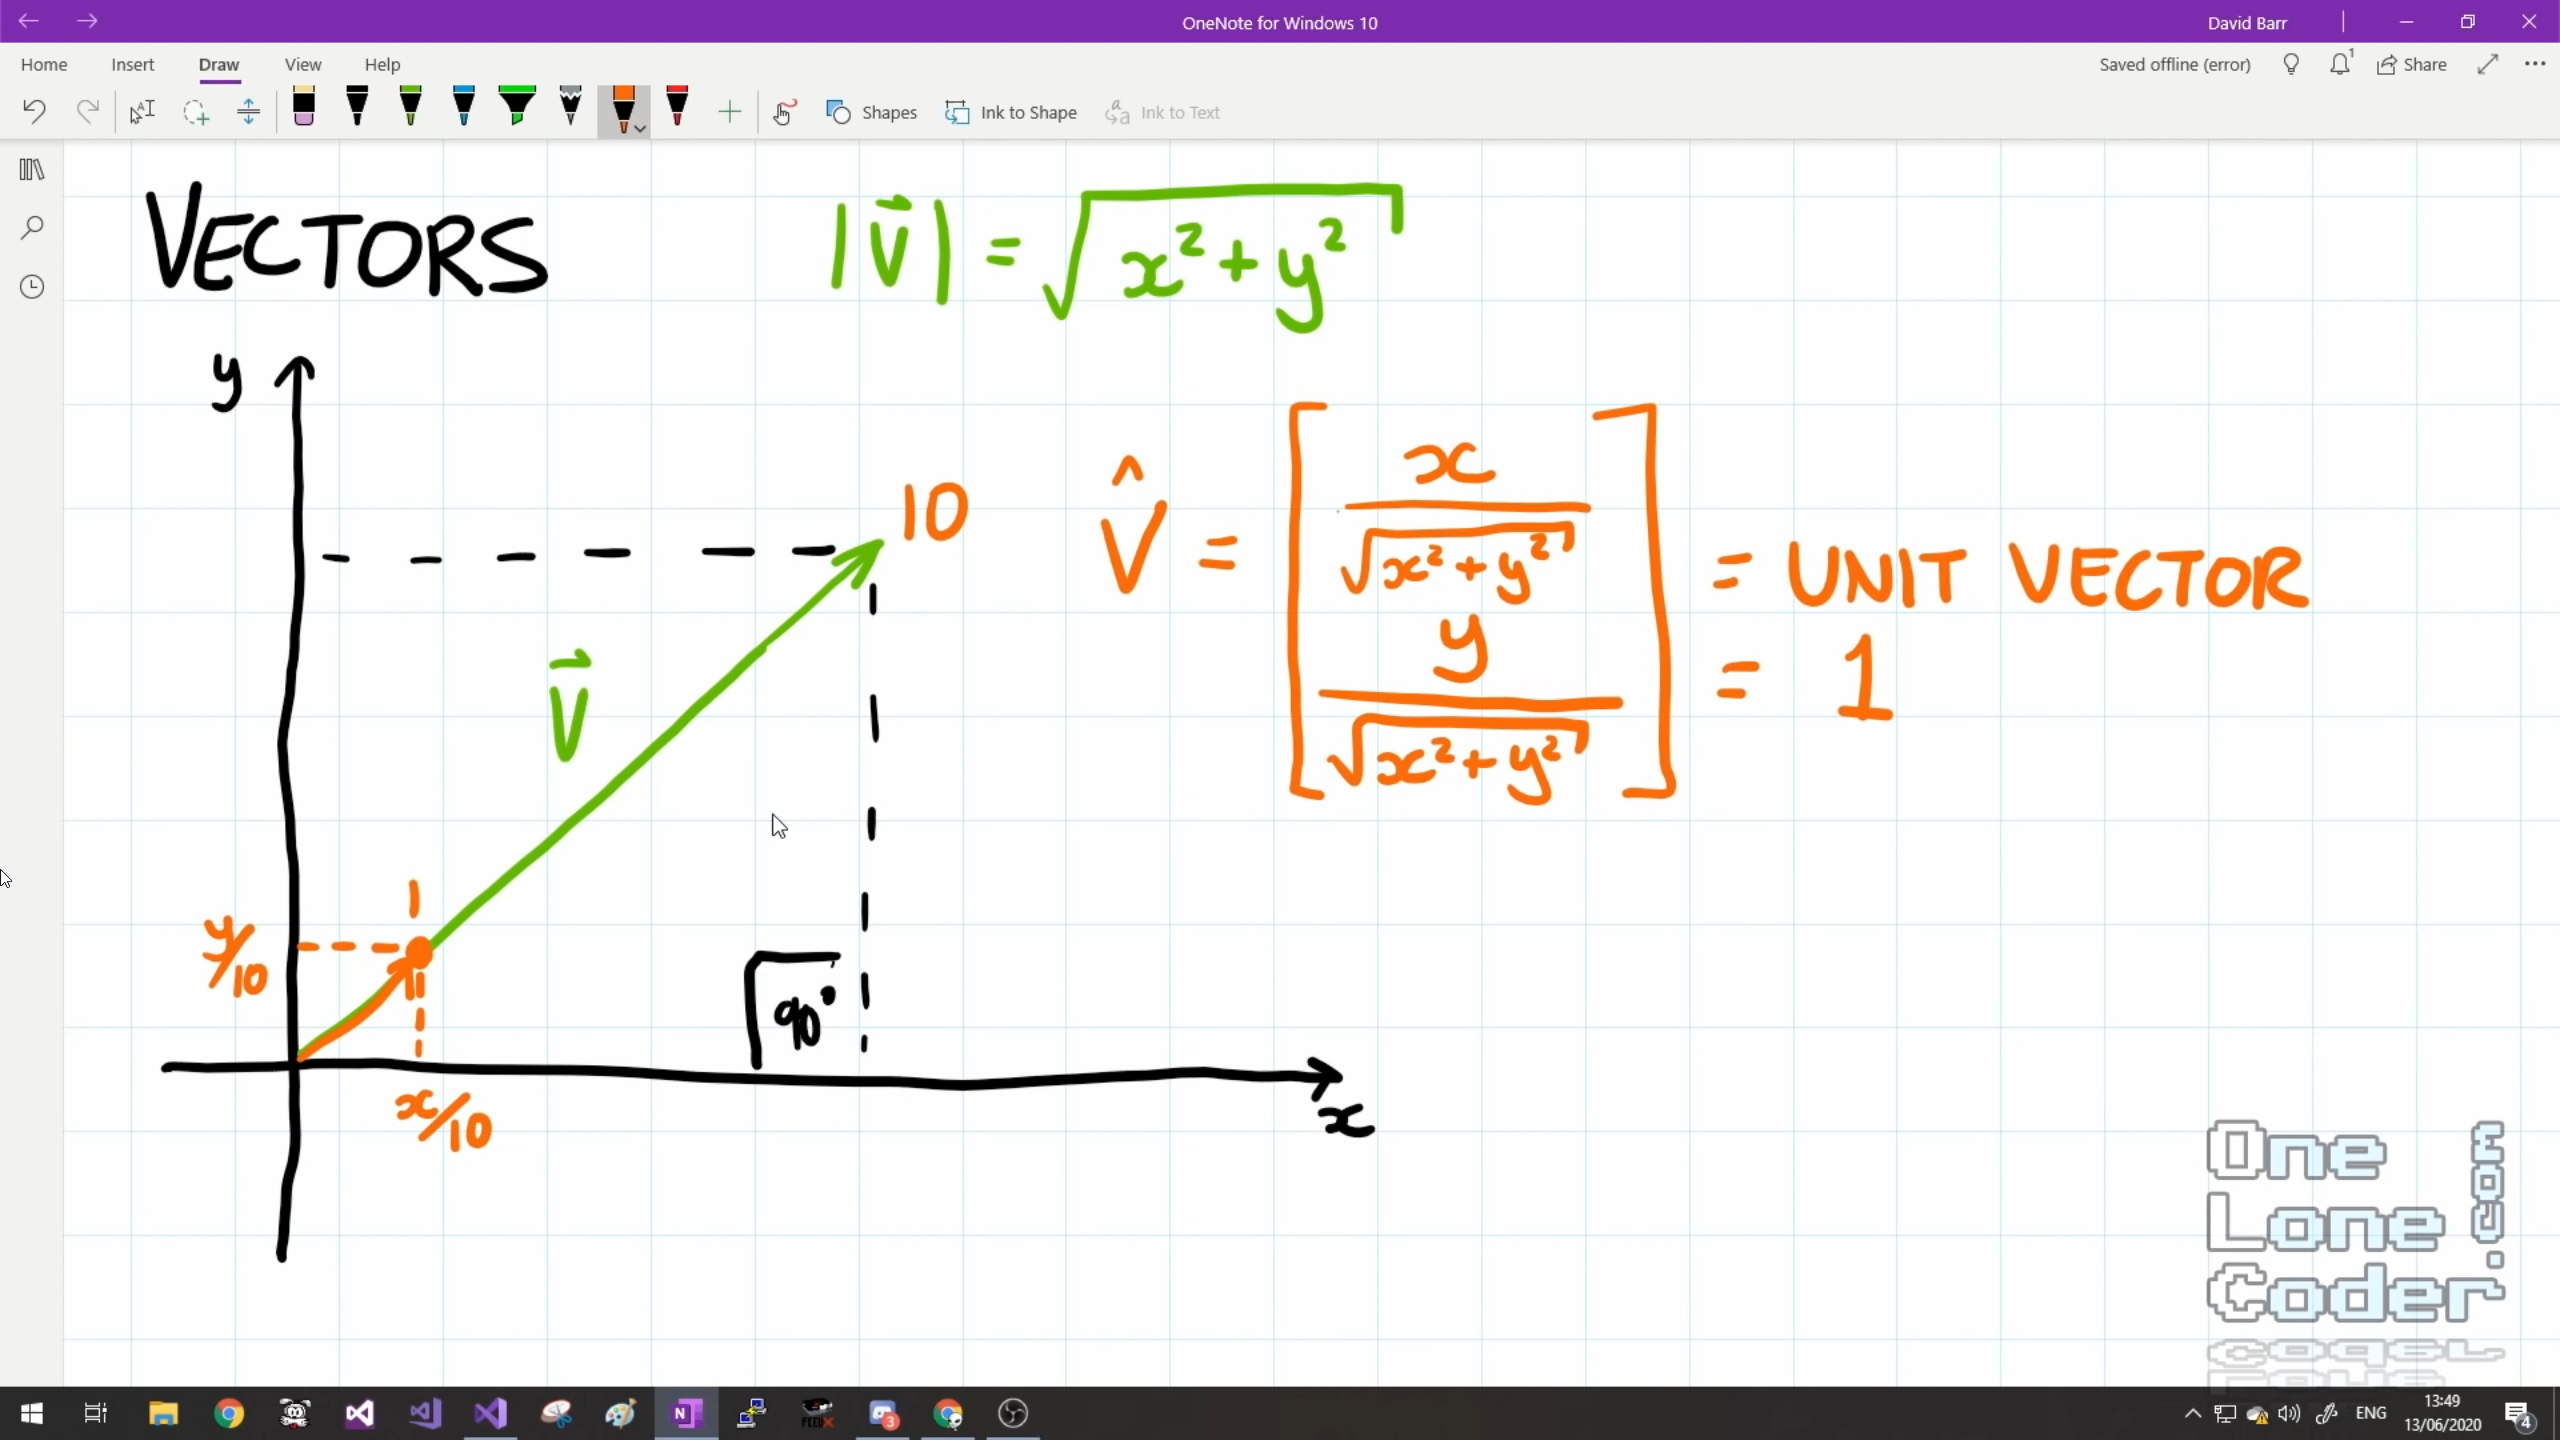 OneNote for Windows 10
David Barr
Home Insert Draw View Help
Saved offline (error)
1
Share
Shapes
Ink to Shape
Ink to Text
VECTORS
|V⃗| = √x²+y²
y
10
V̂ = [ x / √x²+y²
y / √x²+y² ]
= UNIT VECTOR
= 1
V⃗
1
y/10
90°
x/10
x
One
Lone
Coder
.com
N
FEED
3
ENG
13:49
13/06/2020
4